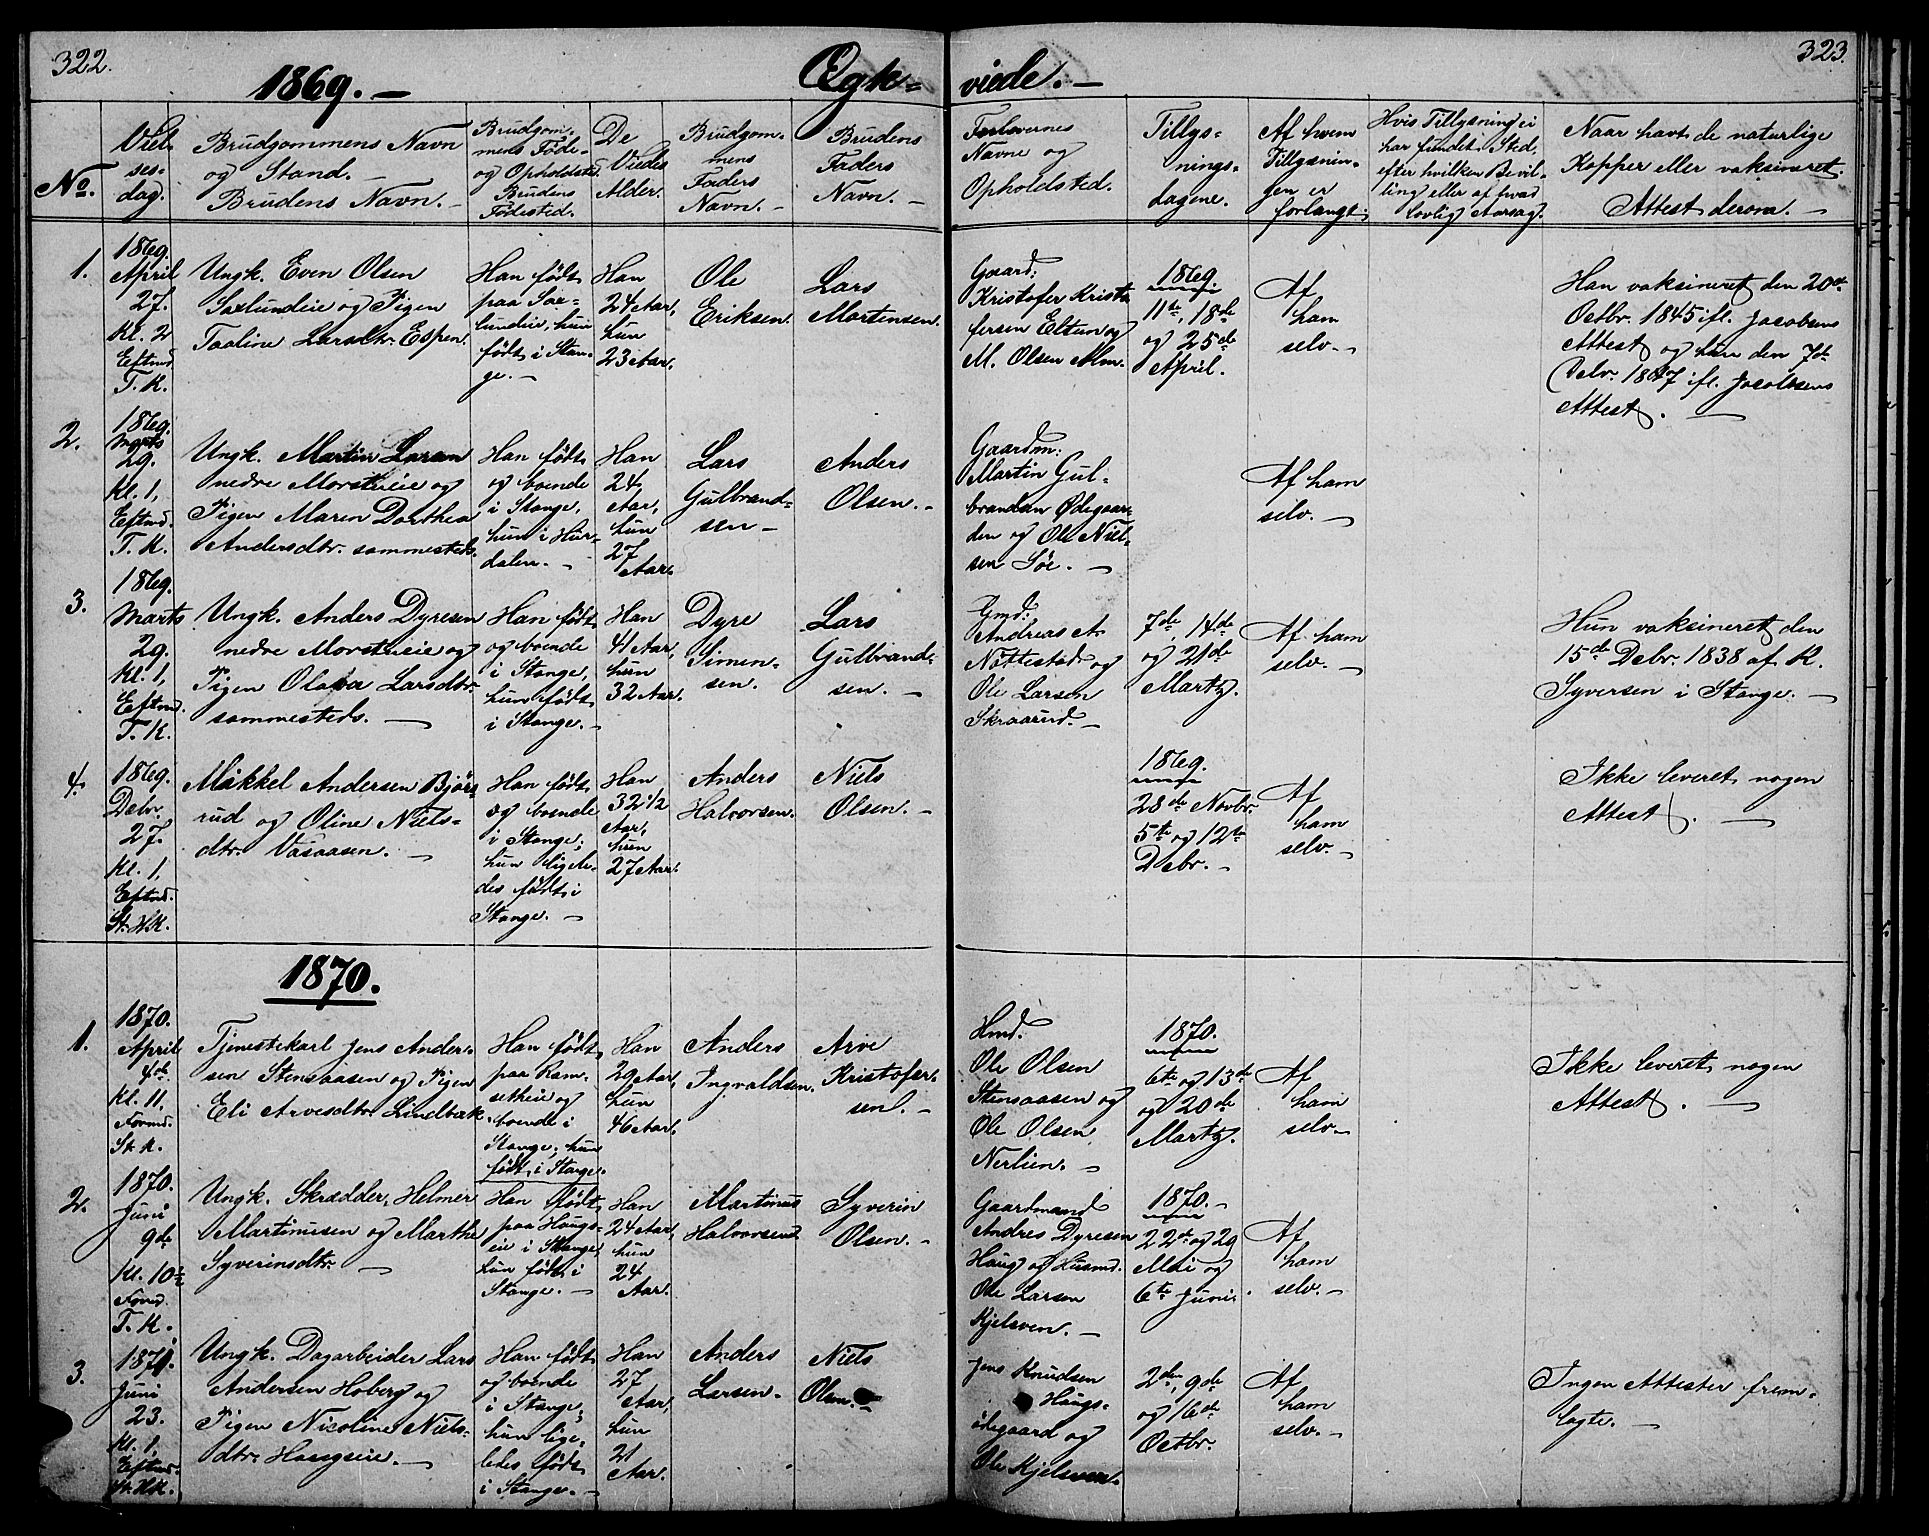 322.
1869. —
Ægk=
No.
Viel-
ses-
dag.
Brudgommens Navn
og Stand. —
Brudens Navn. —
Brudgom-
mens Føde-
og Opholdsted
Brudens
Fødested.
De
Viedes
Alder.
Brudgom-
mens
Faders
Navn. —
Brudens
Faders
Navn. —
1.
1869.
April
27.
Kl. 2
Eftmd.
T. K.
Ungk. Even Olsen
Saxlundeie og Pigen
Taaline Larsdtr. Espen.
Han født
paa Sax-
lundeie, hun
født i Stan-
ge. —
Han
24 Aar,
hun
23 Aar.
Ole
Eriksen.
Lars
Martinsen.
2.
1869.
Marts
29.
Kl. 1,
Eftmd.
T. K.
Ungk. Martin Larsen
nedre Morstueie og
Pigen Maren Dorthea
Andersdtr. sammesteds.
Han født
og boende
i Stange,
hun i Hur-
dalen. —
Han
24
Aar,
hun
27
Aar.
Lars
Gulbrand-
sen —
Anders
Olsen. —
3.
1869.
Marts
29.
Kl. 1,
Eftmd.
T. K.
Ungk. Anders Dyresen
nedre Morstueie og
Pigen Olava Larsdtr.
sammesteds. —
Han født
og boende
i Stange,
hun født
i Stange. —
Han
41 Aar,
hun
32 Aar.
Dyre
Simen-
sen.
Lars
Gulbrand-
sen. —
4.
1869.
Debr.
27.
Kl. 1,
Eftmd.
St. H.K.
Mikkel Andersen Bjør-
rud og Oline Niels-
dtr. Vasaasen. —
Han født
og boende
i Stange;
hun ligele-
des født i
Stange. —
Han
32 1/2
Aar,
hun
27 Aar.
Anders
Halvorsen.
Niels
Olsen. —
1870.
1.
1870.
April
4de
Kl. 11,
Formd.
St. K.
Tjenestekarl Jens Ander-
sen Stensaasen og Pigen
Eli Arvesdtr. Lindbak
Han født
paa Rom-
setheie og
boende i
Stange; hun
født i Stange.
Han
29 Aar,
hun
46 Aar.
Anders
Ingvaldsen.
Arve
Kristofer-
sen. —
2.
1870.
Juni
9de
Kl. 10½
Formd.
T. K.
Ungk. Skrædder, Helmer
Martinusen og Marthe
Syverinsdtr. —
Han født
paa Haugs-
eie i Stange
hun født i
Stange. —
Han
24 Aar,
hun
24
Aar.
Martinus
Halvorsen
Syverin
Olsen. —
3.
1870.
Juni
23.
Kl. 1,
Eftmd.
St. H.K.
Ungk. Dagarbeider Lars
Andersen Hoberg og
Pigen Nicoline Niels-
dtr. Haugseie. —
Han født
og boende
i Stange;
hun lige-
ledes født
i Stange. —
Han
27
Aar,
hun
21
Aar.
Anders
Larsen.
Niels
Olsen. —
323.
viede. —
Forlovernes
Navne og
Opholdsted.
Tillys-
nings-
dagene.
Af hvem
Tillysnin-
gen er
forlangt.
Hvis Tillysning ei
har fundet Sted,
efter hvilken Bevil-
ling eller af hvad
lovlig Aarsag.
Naar havt de naturlige
Kopper eller vaksineret.
Attest derom. —
Gaard:
Kristofer Kristo-
fersen Eltun og
M. Olsen Alm.
1869.
11te, 18de
og 25de
April.
Af
ham
selv. —
Han vaksineret den 20de
Octbr. 1845 ifl. Jacobsens
Attest og hun den 7de
Debr. 1847 ifl. Jacobsens
Attest. —
Gaardm:
Martin Gul-
brandsen Ødegaar-
den og Ole Niel-
sen Søe. —
Af ham
selv. —
Gmd:
Andreas A.
Nøttestad og
Ole Larsen
Skraarud. —
7de, 14de
og 21de
Marts.
Af ham
selv. —
Hun vaksineret den
15de Debr. 1838 af K.
Syversen i Stange. —
1869.
28de Novbr.
5te og 12te
Debr. —
Af
ham
selv. —
Ikke leveret nogen
Attest. —
Hmd.
Ole Olsen
Stensaasen og
Ole Olsen
Nerlien. —
1870.
6te og 13de
og 20de
Marts.
Af
ham
selv. —
Ikke leveret nogen
Attest. —
Gaardmand
Andres Dyresen
Haug og Husmd.
Ole Larsen
Kjelsven. —
1870. —
22de og 29
Mai og
6te Juni.
Af
ham
selv. —
Jens Knudsen
Haugs-
ødegaard og
Ole Kjelsven.
2den, 9de
og 16de
Octbr.
Af
ham
selv. —
Ingen Attester frem-
lagte. —